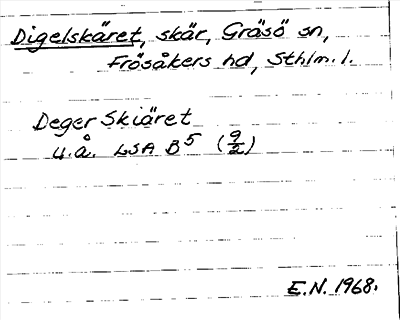 Digelskäret, skär, Gräsö sn,
Frösåkers hd, Sthlm. l.
Deger Skiäret
u.å. LSA B5 (9/2)
E.N. 1968.